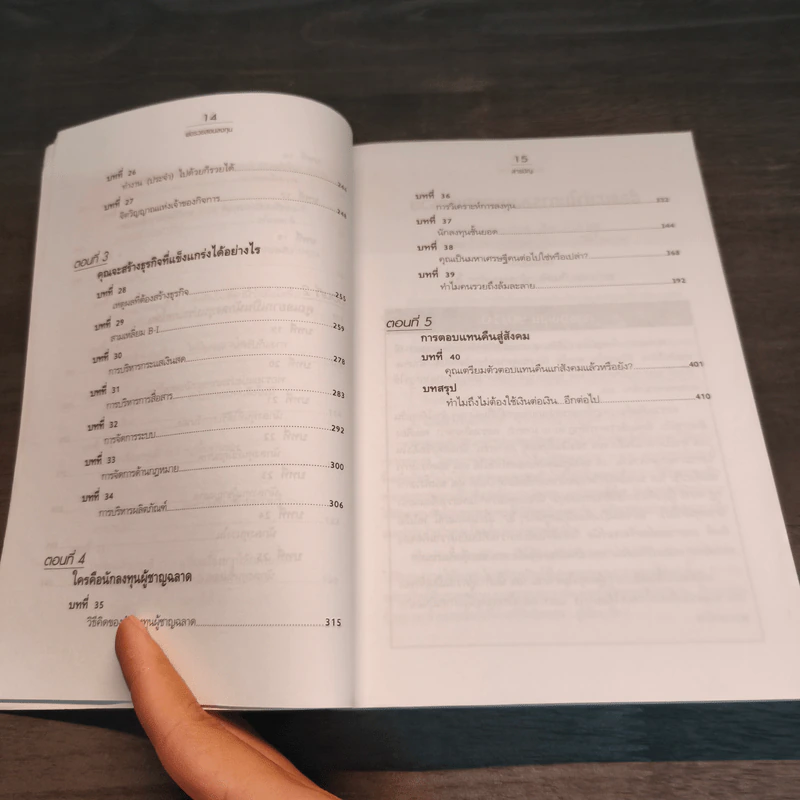 14
พ่อรวยสอนลงทุน
บทที่ 26
ทำงาน (ประจำ) ไปด้วยก็รวยได้
บทที่ 27
จิตวิญญาณแห่งเจ้าของกิจการ
ตอนที่ 3
คุณจะสร้างธุรกิจที่แข็งแกร่งได้อย่างไร
บทที่ 28
เหตุผลที่ต้องสร้างธุรกิจ 255
บทที่ 29
สามเหลี่ยม B-I 259
บทที่ 30
การบริหารกระแสเงินสด 278
บทที่ 31
การบริหารการสื่อสาร 283
บทที่ 32
การจัดการระบบ 292
บทที่ 33
การจัดการด้านกฎหมาย 300
บทที่ 34
การบริหารผลิตภัณฑ์ 306
ตอนที่ 4
ใครคือนักลงทุนผู้ชาญฉลาด
บทที่ 35
วิธีคิดของ ทุนผู้ชาญฉลาด 315
15
สารบัญ
บทที่ 36
การวิเคราะห์การลงทุน
บทที่ 37
นักลงทุนชั้นยอด
บทที่ 38
คุณเป็นมหาเศรษฐีคนต่อไปใช่หรือเปล่า? 368
บทที่ 39
ทำไมคนรวยถึงล้มละลาย 392
ตอนที่ 5
การตอบแทนคืนสู่สังคม
บทที่ 40
คุณเตรียมตัวตอบแทนคืนแก่สังคมแล้วหรือยัง? 401
บทสรุป
ทำไมถึงไม่ต้องใช้เงินต่อเงิน อีกต่อไป 410